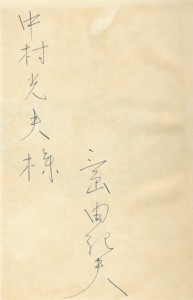 中村光夫様
三島由紀夫